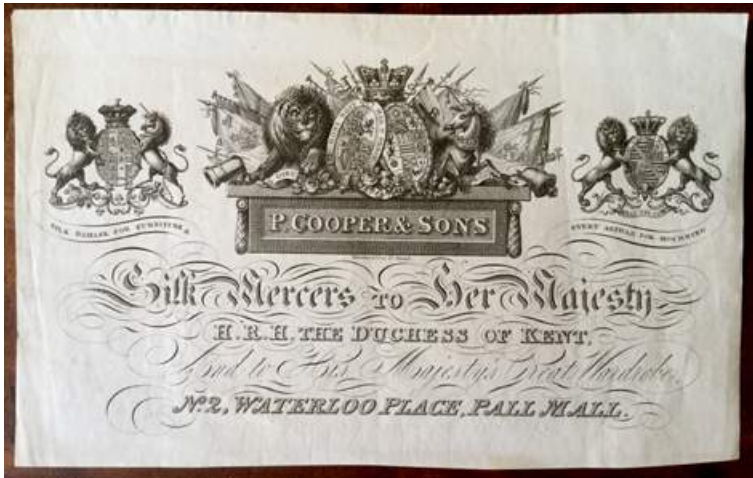 SILK DAMASK FOR FURNITURE &
EVERY ARTICLE FOR MOURNING
P. COOPER & SONS
Silk Mercers TO Her Majesty
H.R.H. THE DUCHESS OF KENT,
And to His Majesty's Great Wardrobe,
No. 2, WATERLOO PLACE, PALL MALL.